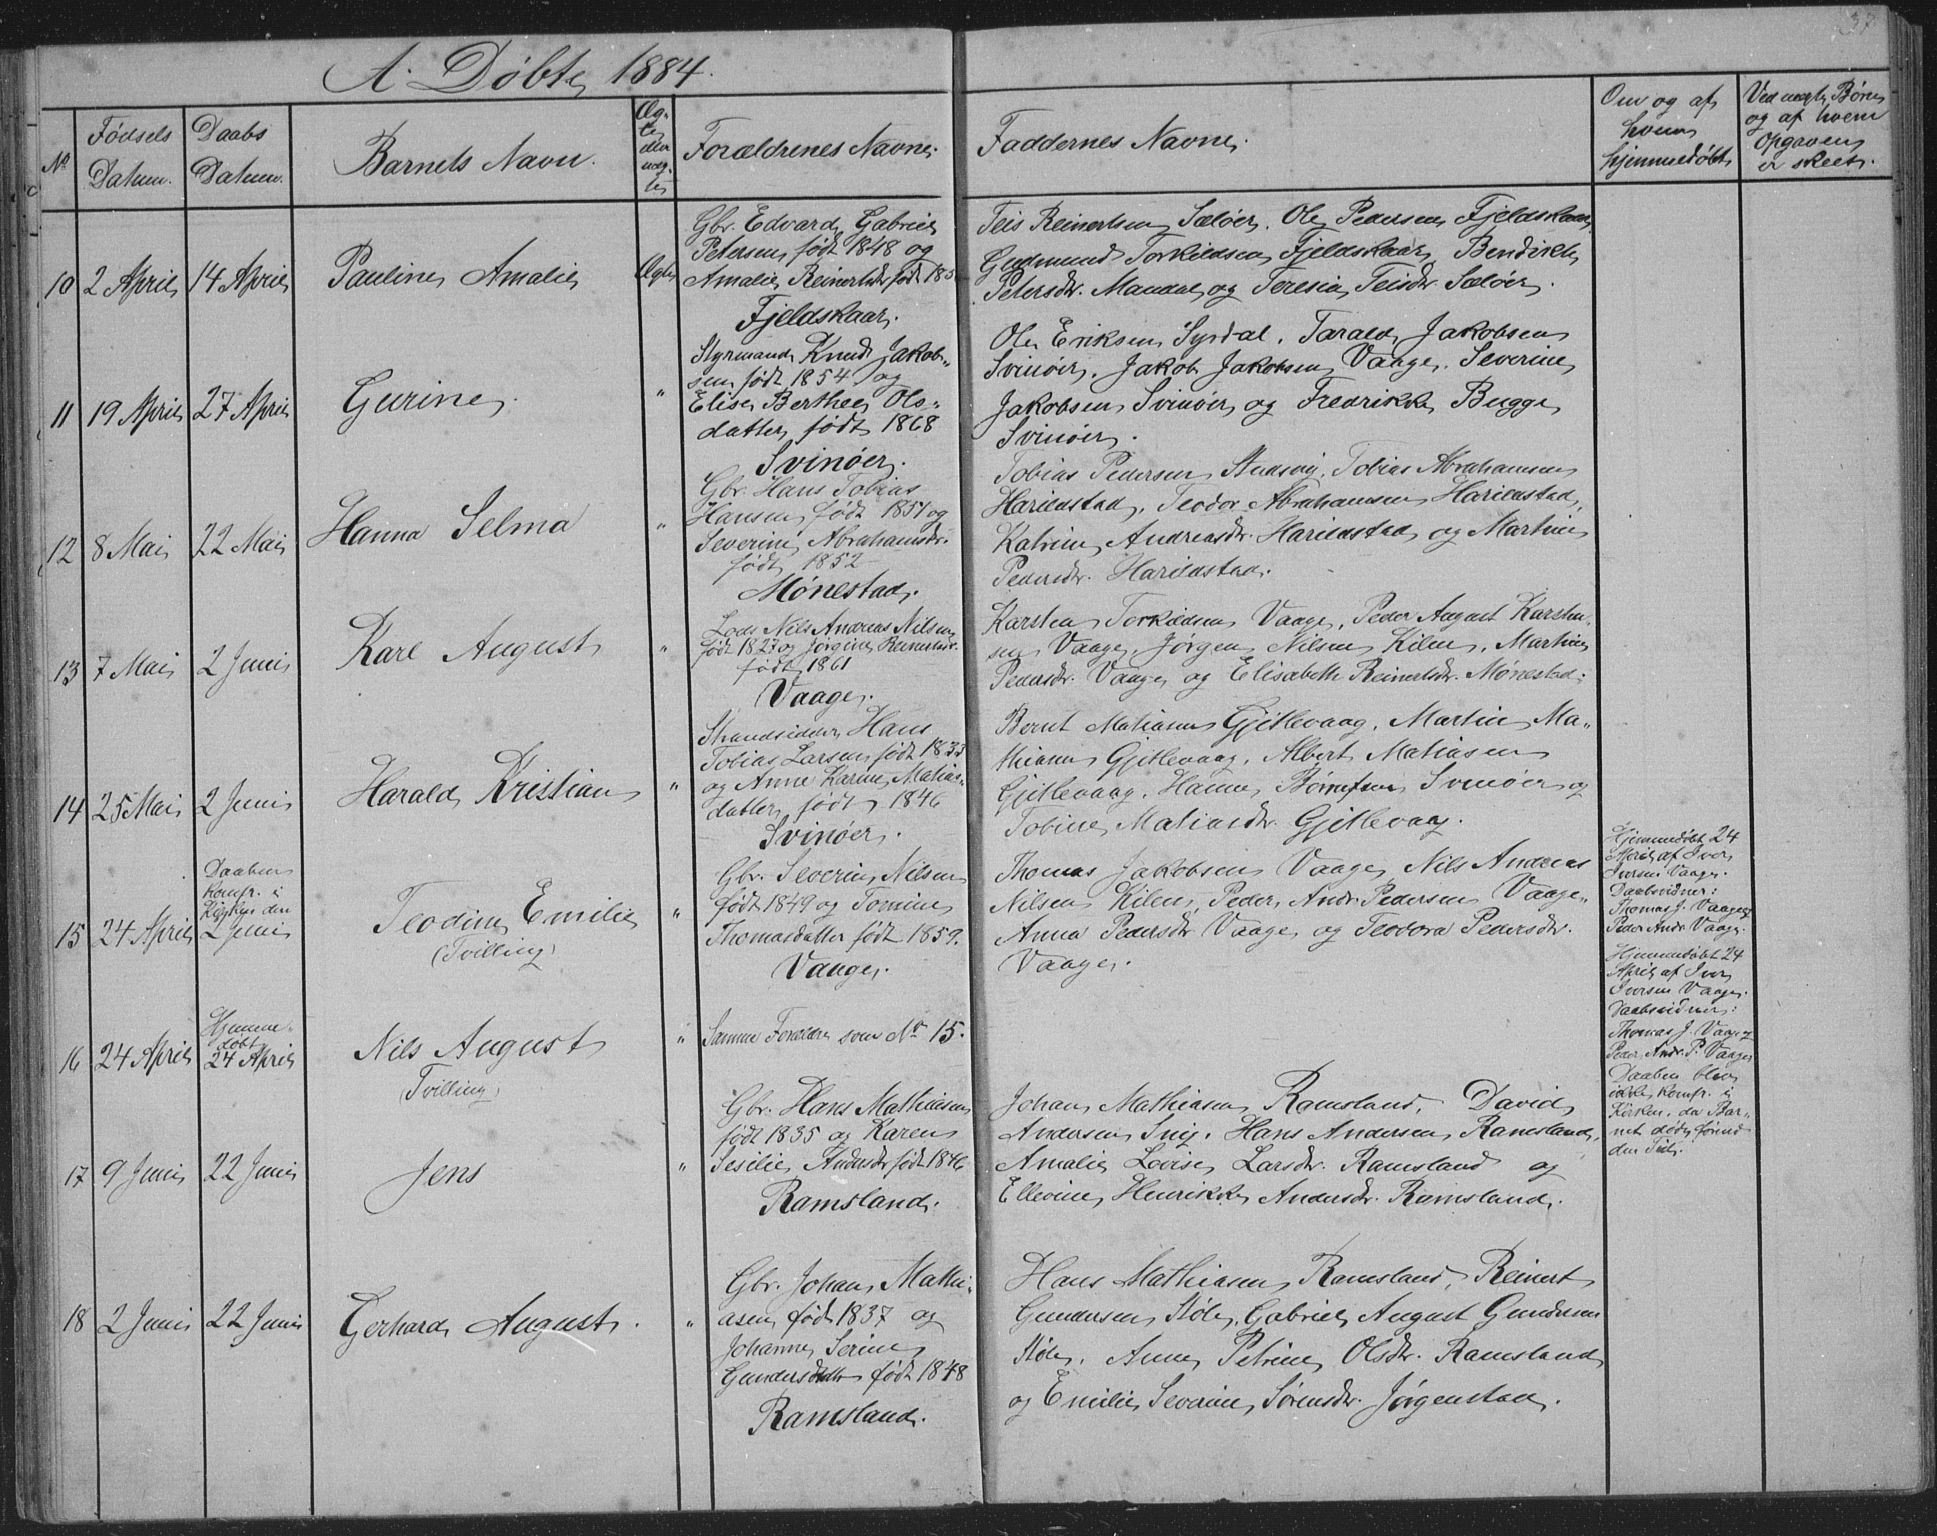 37
A. Døbte 1884.
No
Fødsels Datum.
Daabs Datum.
Barnets Navn.
Ægte eller uægte
Forældrenes Navne.
Faddernes Navne.
Om og af hvem hjemmedøbt
Ved uægte Børn og af hvem Opgaven er skeet.
10 2 April 14 April Pauline Amalie Ægte
Gbr. Edvard Gabriel
Petersen født 1848 og
Amalie Reinertsdr. født 185
Fjeldskaar.
Teis Reinertsen Sæløer. Ole Pedersen Fjeldskaar
Gudmund Torkildsen Fjeldskaar, Bendikte
Petersdr. Mandal og Teresia Teisdr. Sæløer.
11 19 April 27 April Gurine "
Styrmand Knud Jakob-
sen født 1854 og
Elise Berthea Ols-
datter født 1868
Svinøer.
Ole Eriksen Syrdal. Tarald Jakobsen
Svinøer. Jakob Jakobsen Vaage. Severine
Jakobsen Svinøer og Fredrikke Bugge
Svinøer.
12 8 Mai 22 Mai Hanna Selma "
Gbr. Hans Tobias
Hansen født 1851 og
Severine Abrahamsdr.
født 1852
Mønestad.
Tobias Pedersen Tobias Abrahamsen
Harildstad, Teodor Abrahamsen Harildstad,
Katrine Andreasdr. Harildstad og Martine
Pedersdr. Harildstad.
13 7 Mai 2 Juni Karl August "
Lods Nils Andreas Nilsen
født 1827 og Jørgine Reinertsdr.
født 1861
Vaage.
Karsten Torkildsen Vaage, Peder August Karsten-
sen Vaage, Jørgen Nilsen Kilen, Martine
Pedersdr. Vaage og Elisabeth Reinertsdr. Mønestad.
14 25 Mai 2 Juni Harald Kristian "
Strandsidder Hans
Tobias Larsen født 1833
og Anne Karine Matias-
datter født 1846
Svinøer.
Bernt Matiasen Gjitlevaag, Martin Ma-
thiasen Gjitlevaag, Albert Matiasen
Gjitlevaag, Hanne Svinøer og
Tobine Matiasdr. Gjitlevaag.
15 24 April
Daaben
komfr. i
Kirken den
2 Juni
Teodine Emilie
(Tvilling)
"
Gbr. Severin Nilsen
født 1849 og Tomine
Thomasdatter født 1859.
Vaage.
Thomas Jakobsen Vaage, Nils Andreas
Nilsen Kilen, Peder Andr. Pedersen Vaage.
Anna Pedersdr. Vaage og Teodora Pedersdr.
Vaage.
Hjemmedøbt 24
April af Iver
Iversen Vaage.
Daabsvidner:
Thomas J. Vaage og
Peder Andr. Vaage.
16 24 April
Hjemme-
døbt
24 April
Nils August
(Tvilling)
"
Samme Forældre som No 15.
Hjemmedøbt 24
April af Iver
Iversen Vaage.
Daabsvidner:
Thomas J. Vaage og
Peder Andr. P. Vaage
Daaben blev
ikke komfr. i
Kirken, da Bar-
net døde forind
den Tid.
17 9 Juni 22 Juni Jens "
Gbr. Hans Mathiasen
født 1835 og Karen
Sesilie Andersdr. født 1846
Ramsland.
Johan Mathiasen Ramsland, David
Andersen Snig. Hans Andersen Ramsland,
Amalie Lovise Larsdr. Ramsland og
Ellevine Henrikke Andersdr. Ramsland.
18 2 Juni 22 Juni Gerhard August. "
Gbr. Johan Mathi-
asen født 1837 og
Johanne Serine
Gundersdatter født 1848
Ramsland.
Hans Mathiasen Ramsland, Reinert
Gundersen Støle, Gabriel August Gundersen
Støle, Anne Petrine Olsdr. Ramsland
og Emilie Severine Sørensdr. Jørgenstad.